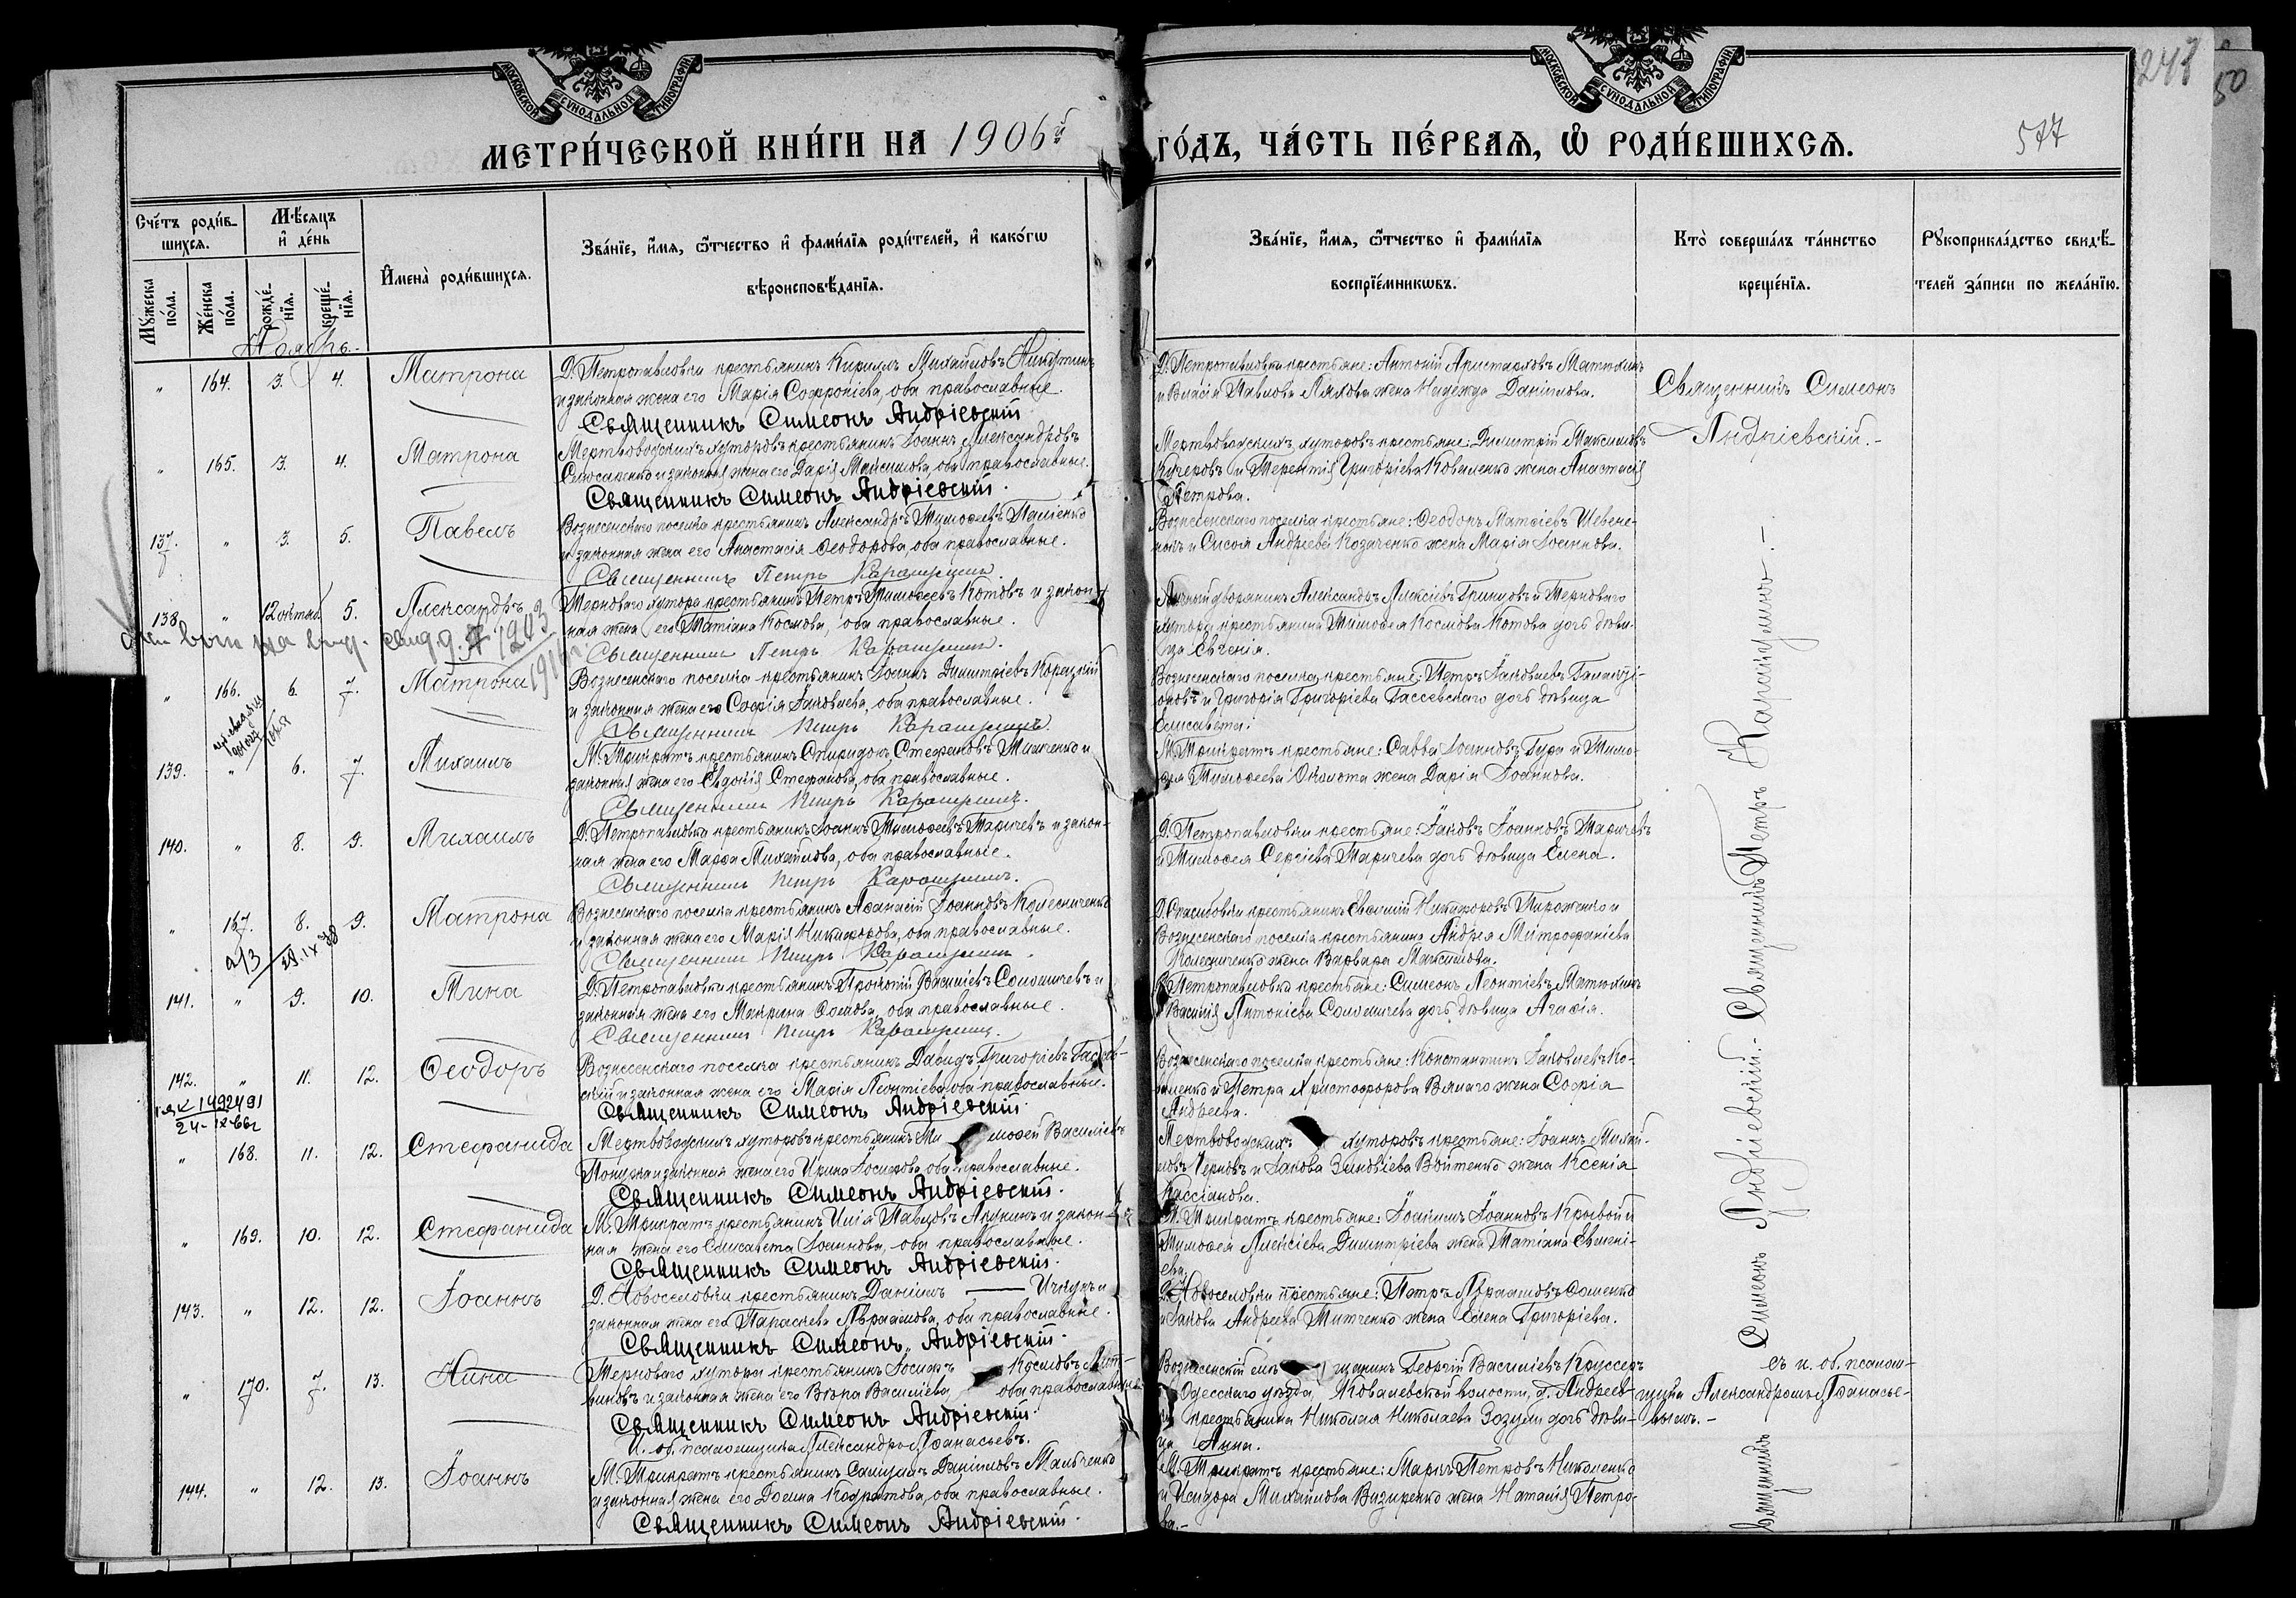 МОСКОВСКОЙ СѴНОДАЛЬНОЙ ТИПОГРАФІИ
МОСКОВСКОЙ СѴНОДАЛЬНОЙ ТИПОГРАФІИ
247
50
МЕТРИ́ЧЕСКОЙ КНИ́ГИ НА 1906й ГО́ДЪ, ЧА́СТЬ ПЕ́РВАЯ, Ѡ РОДИ́ВШИХСЯ.
577
Сче́тъ роди́в-
шихся.
Мѣ́сяцъ
и҆ де́нь
Мꙋ́жеска
по́ла.
Же́нска
по́ла.
рожде́-
нїя.
креще́-
нїя.
И҆мена̀ роди́вшихся.
Зва́нїе, и҆́мя, ѻ҆́тчество и҆ фами́лїя роди́телей, и҆ како́гѡ
вѣроисповѣ́данїя.
Зва́нїе, и҆́мя, ѻ҆́тчество и҆ фами́лїя
воспрїе́мникѡвъ.
Кто̀ соверша́лъ та́инство
креще́нїя.
Рꙋкоприкла́дство свидѣ́-
телей за́писи по жела́нїю.
Ноябрь.
" 164. 3. 4. Матрона
Д. Петропавловки крестьянинъ Кириллъ Михайловъ Никитинъ
и законная жена его Марія Софроніева, оба православные.
Священникъ Симеонъ Андріевскій.
Д. Петропавловки крестьяне: Антоній Аристарховъ Матюхинъ
и Власія Павлова Ляхова жена Надежда Даніилова.
Священникъ Симеонъ
Андріевскій.-
" 165. 3. 4. Матрона
Мертвоводскихъ хуторовъ крестьянинъ Іоаннъ Александровъ
Слюсаренко и законная жена его Дарія Максимова, оба православные.
Священникъ Симеонъ Андріевскій.
Мертвоводскихъ хуторовъ крестьяне: Димитрій Максимовъ
Кучеровъ и Терентія Григоріева Коваленко жена Анастасія
Петрова.
137. " 3. 5. Павелъ
Вознесенскаго поселка крестьянинъ Александръ Тимоѳеевъ Паліенко
и законная жена его Анастасія Ѳеодорова, оба православные.
Священникъ Петръ
Вознесенскаго поселка крестьяне: Ѳеодоръ Матѳіевъ Шевче-
и Сисоя Андреева Козаченко жена Марія Іоаннова.
138. " 12 октяб. 5. Александръ
Терноваго хутора крестьянинъ Петръ Тимоѳеевъ Котовъ и закон-
ная жена его Татіана Космова, оба православные.
Священникъ Петръ
Личный дворянинъ Александръ Алексіевъ Гринцовъ и Терноваго
хутора крестьянина Тимоѳея Космова Котова дочь дѣви-
ца Евгенія.
1203
1916
" 166. 6. 7. Матрона
Вознесенскаго поселка крестьянинъ Іоаннъ Димитріевъ Корецкій
и законная жена его Софія Іаковлева, оба православные.
Священникъ Петръ
Вознесенскаго поселка крестьяне: Петръ Іаковлевъ
и Григорія Григоріева Гассевскаго дочь дѣвица
Елисавета.
139. " 6. 7. Михаилъ
М. Трикратъ крестьянинъ Спиридонъ Стефановъ Тищенко и
законная жена его Евдокія Стефанова, оба православные.
Священникъ Петръ
М. Трикратъ крестьяне: Савва Іоанновъ Гура и Тимо-
ѳея Тимоѳеева Околота жена Дарія Іоаннова.
140. " 8. 9. Михаилъ
Д. Петропавловки крестьянинъ Іоаннъ Тимоѳеевъ Таричевъ и закон-
ная жена его Марѳа Михайлова, оба православные.
Священникъ Петръ
Д. Петропавловки крестьяне: Іаковъ Іоанновъ Таричевъ
и Тимоѳея Сергіева Таричева дочь дѣвица Елена.
" 167. 8. 9. Матрона
Вознесенскаго поселка крестьянинъ Аѳанасій Іоанновъ Колесниченко
и законная жена его Марія Никифорова, оба православные.
Священникъ Петръ
Д. Спасибовки крестьянинъ Евѳимій Никифоровъ Пироженко и
Вознесенскаго поселка крестьянина Андрея Митрофаніева
Колесниченко жена Варвара Максимова.
141. " 9. 10. Мина
Д. Петропавловки крестьянинъ Прокопій Василіевъ Соломичевъ и
законная жена его Матрона Ѳомова, оба православные.
Священникъ Петръ
Д. Петропавловки крестьяне: Симеонъ Леонтіевъ Матюхинъ
и Василія Антоніева Соломичева дочь дѣвица Агафія.
142. " 11. 12. Ѳеодоръ
Вознесенскаго поселка крестьянинъ Давидъ Григоріевъ Гассев-
скій и законная жена его Марія Леонтіева, оба православные.
Священникъ Симеонъ Андріевскій.
Вознесенскаго поселка крестьяне: Константинъ Іаковлевъ Ко-
и Петра Христофорова Вялаго жена Софія
Андреева.
1492491
" 168. 11. 12. Стефанида
Мертвоводскихъ хуторовъ крестьянинъ Ти моѳей Василіевъ
и законная жена его Ирина Іосифова, оба православные.
Священникъ Симеонъ Андріевскій.
Мертвоводскихъ хуторовъ крестьяне: Іоаннъ Михай-
ловъ Черновъ и Іакова Зиновіева Войтенко жена Ксенія
Кассіанова.
" 169. 10. 12. Стефанида
М. Трикратъ крестьянинъ Илія Павловъ и закон-
ная жена его Елисавета Іоаннова, оба православные.
Священникъ Симеонъ Андріевскій.
М. Трикратъ крестьяне: Іоакимъ Іоанновъ Кривой и
Тимоѳея Алексіева Димитріева жена Татіана Евмені-
ева.
143. " 12. 12. Іоаннъ
Д. Новоселовки крестьянинъ Даніилъ —— и
законная жена его Параскева Авраамова, оба православные.
Священникъ Симеонъ Андріевскій.
Д. Новоселовки крестьяне: Петръ Авраамовъ Ѳоменко
и Іакова Андреева Титченко жена Елена Григоріева.
" 170. 7. 13. Нина
Терноваго хутора крестьянинъ Іосифъ Космовъ Лит-
виновъ и законная жена его Вѣра Василіева, оба православные.
Священникъ Симеонъ Андріевскій.
И. об. псаломщика Александръ Аѳанасьевъ.
Вознесенскій мѣщанинъ Георгій Василіевъ Круссеръ
и Одесскаго уѣзда, Ковалевской волости, д. Андреев-
ки крестьянина Николая Николаева Зозули дочь дѣви-
ца Анна.
съ и. об. псалом-
щика Александромъ Аѳанасье-
вымъ.-
144. " 12. 13. Іоаннъ
М. Трикратъ крестьянинъ Самуилъ Даніиловъ Мальченко
и законная жена его Домна Кодратова, оба православные.
Священникъ Симеонъ Андріевскій.
М. Трикратъ крестьяне: Маркъ Петровъ Николенко
и Исидора Михайлова Визиренко жена Наталія Петро-
ва.-
Священникъ Симеонъ Андріевскій.- Священникъ Петръ